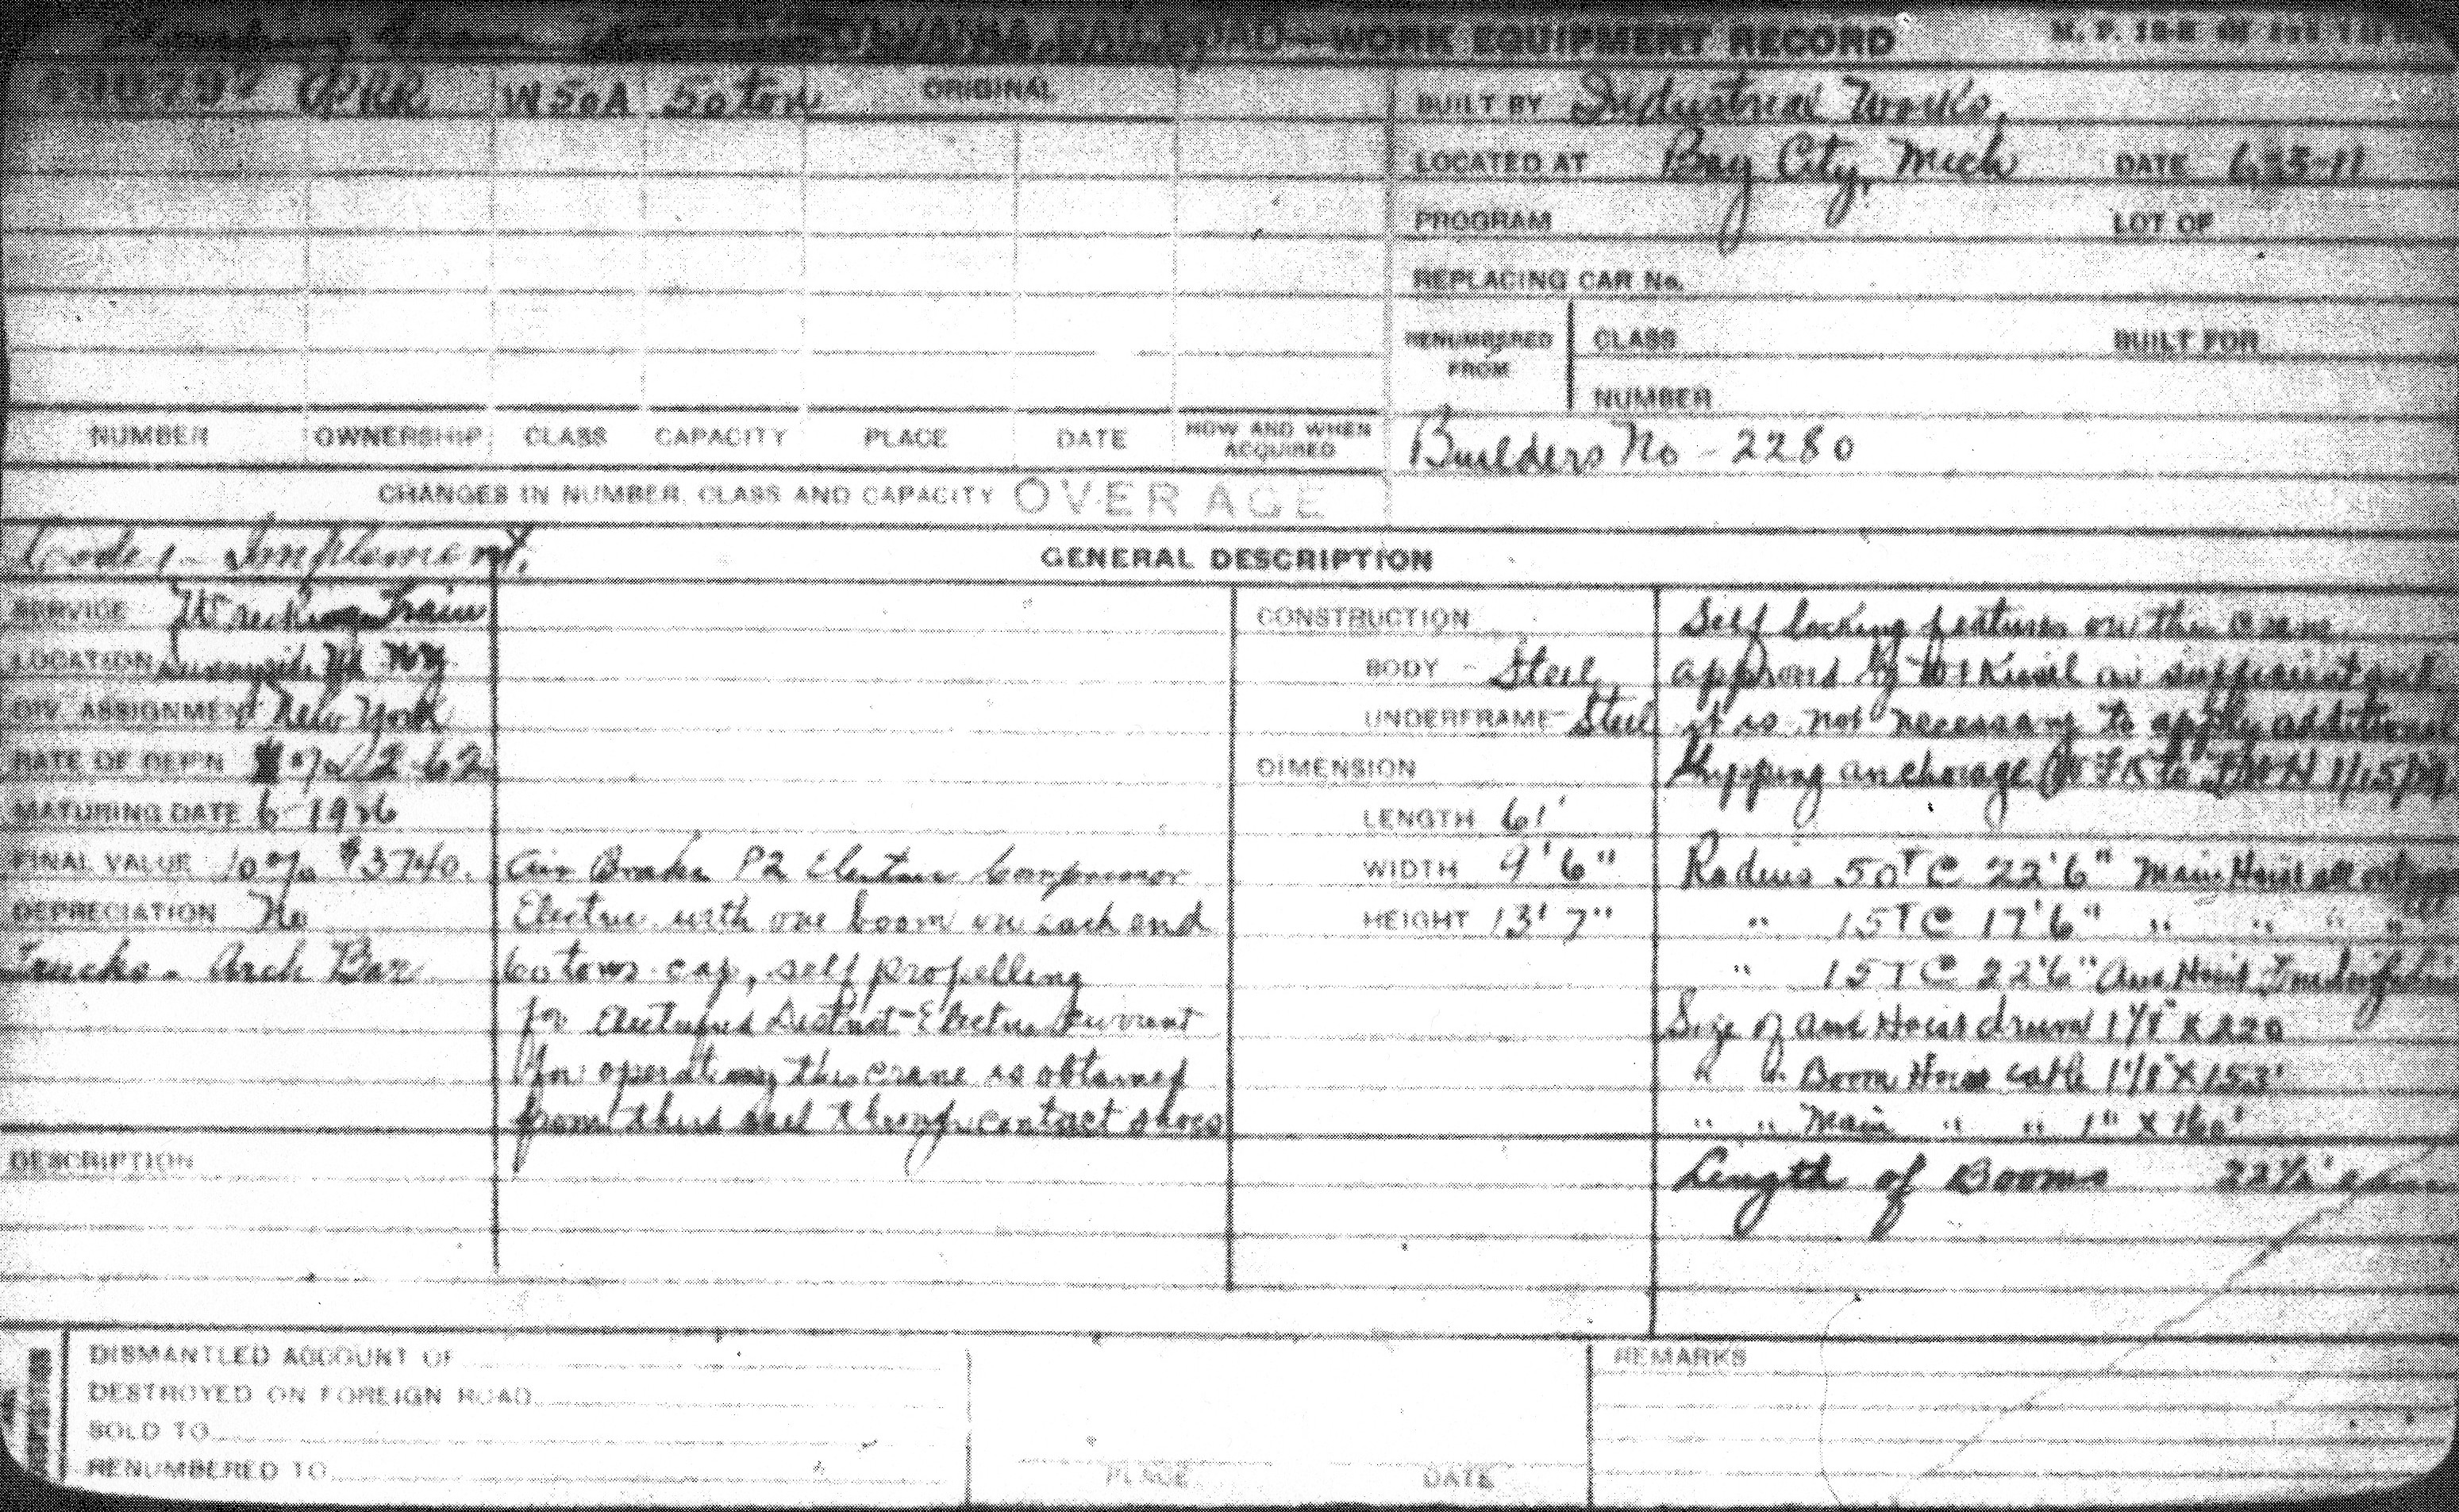 RAILROAD—WORK EQUIPMENT RECORD M. P.
PRR W50A 50 ton ORIGINAL
BUILT BY Industrial Works,
LOCATED AT Bay City, Mich DATE
PROGRAM LOT OF
REPLACING CAR No.
RENUMBERED FROM CLASS BUILT FOR
NUMBER
NUMBER OWNERSHIP CLASS CAPACITY PLACE DATE HOW AND WHEN ACQUIRED
Builders No - 2280
CHANGES IN NUMBER, CLASS AND CAPACITY OVER AGE
GENERAL DESCRIPTION
SERVICE Wrecking Train
LOCATION
DIV. ASSIGNMENT New York
RATE OF DEP'N 2.62
MATURING DATE
FINAL VALUE 10% $3740.
DEPRECIATION No
Trucks - Arch Bar
DESCRIPTION
Air Brake P2 Electric Compressor
Electric with one boom on each end
tons cap, self propelling
for Electrified District-Electric Current
for operating this crane is obtained
from third rail through contact shoes
CONSTRUCTION
BODY - Steel
UNDERFRAME - Steel
DIMENSION
LENGTH 61'
WIDTH 9'6"
HEIGHT 13'7"
Self locking features on this crane
approved by as sufficient and
it is not necessary to apply additional
anchorage
Radius 50 T C 22'6" Main Hoist
" 15 T C 17'6" " " " "
" 15 T C 22'6" Aux Hoist
Size of aux Hoist drum 1 1/8" X 220
" " Boom Hoist cable 1 1/8" X 153'
" " Main " " 1" X 160'
Length of Booms 22½'
DISMANTLED ACCOUNT OF
DESTROYED ON FOREIGN ROAD
SOLD TO
RENUMBERED TO
PLACE DATE
REMARKS